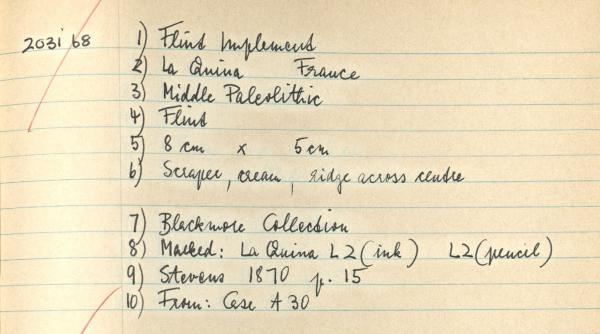 203i 68 1) Flint Implement
2) La Quina France
3) Middle Paleolithic
4) Flint
5) 8 cm x 5 cm
6) Scraper, cream, ridge across centre
7) Blackmore Collection
8) Marked: La Quina L2 (ink) L2 (pencil)
9) Stevens 1870 p. 15
10) From: Case A 30